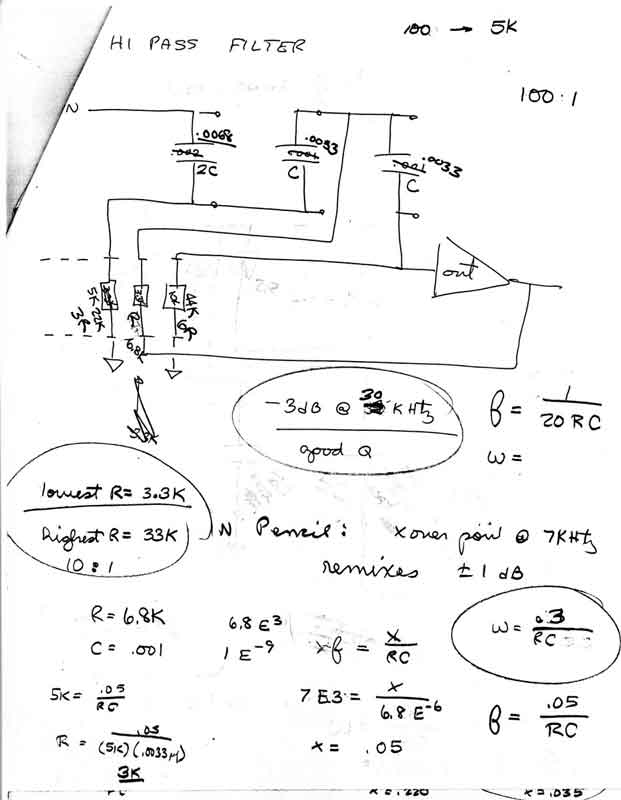 HI PASS FILTER
100 → 5K
100:1
N
.0068
.002
2C
.0033
.001
C
.0033
.001
C
out
5K 22K
3R
R
6.8K
44K
6R
-3dB @ 30 KHtz
good Q
f = 1 / 20 RC
ω =
lowest R = 3.3K
highest R = 33K
10:1
N Pencil: xover poin @ 7KHtz
remixes ±1 dB
R = 6.8K
C = .001
6.8 E3
1 E-9
xf = x / RC
ω = .3 / RC
5K = .05 / RC
7E3 = x / 6.8 E-6
f = .05 / RC
R = .05 / (5K)(.0033M)
3K
x = .05
x = .035